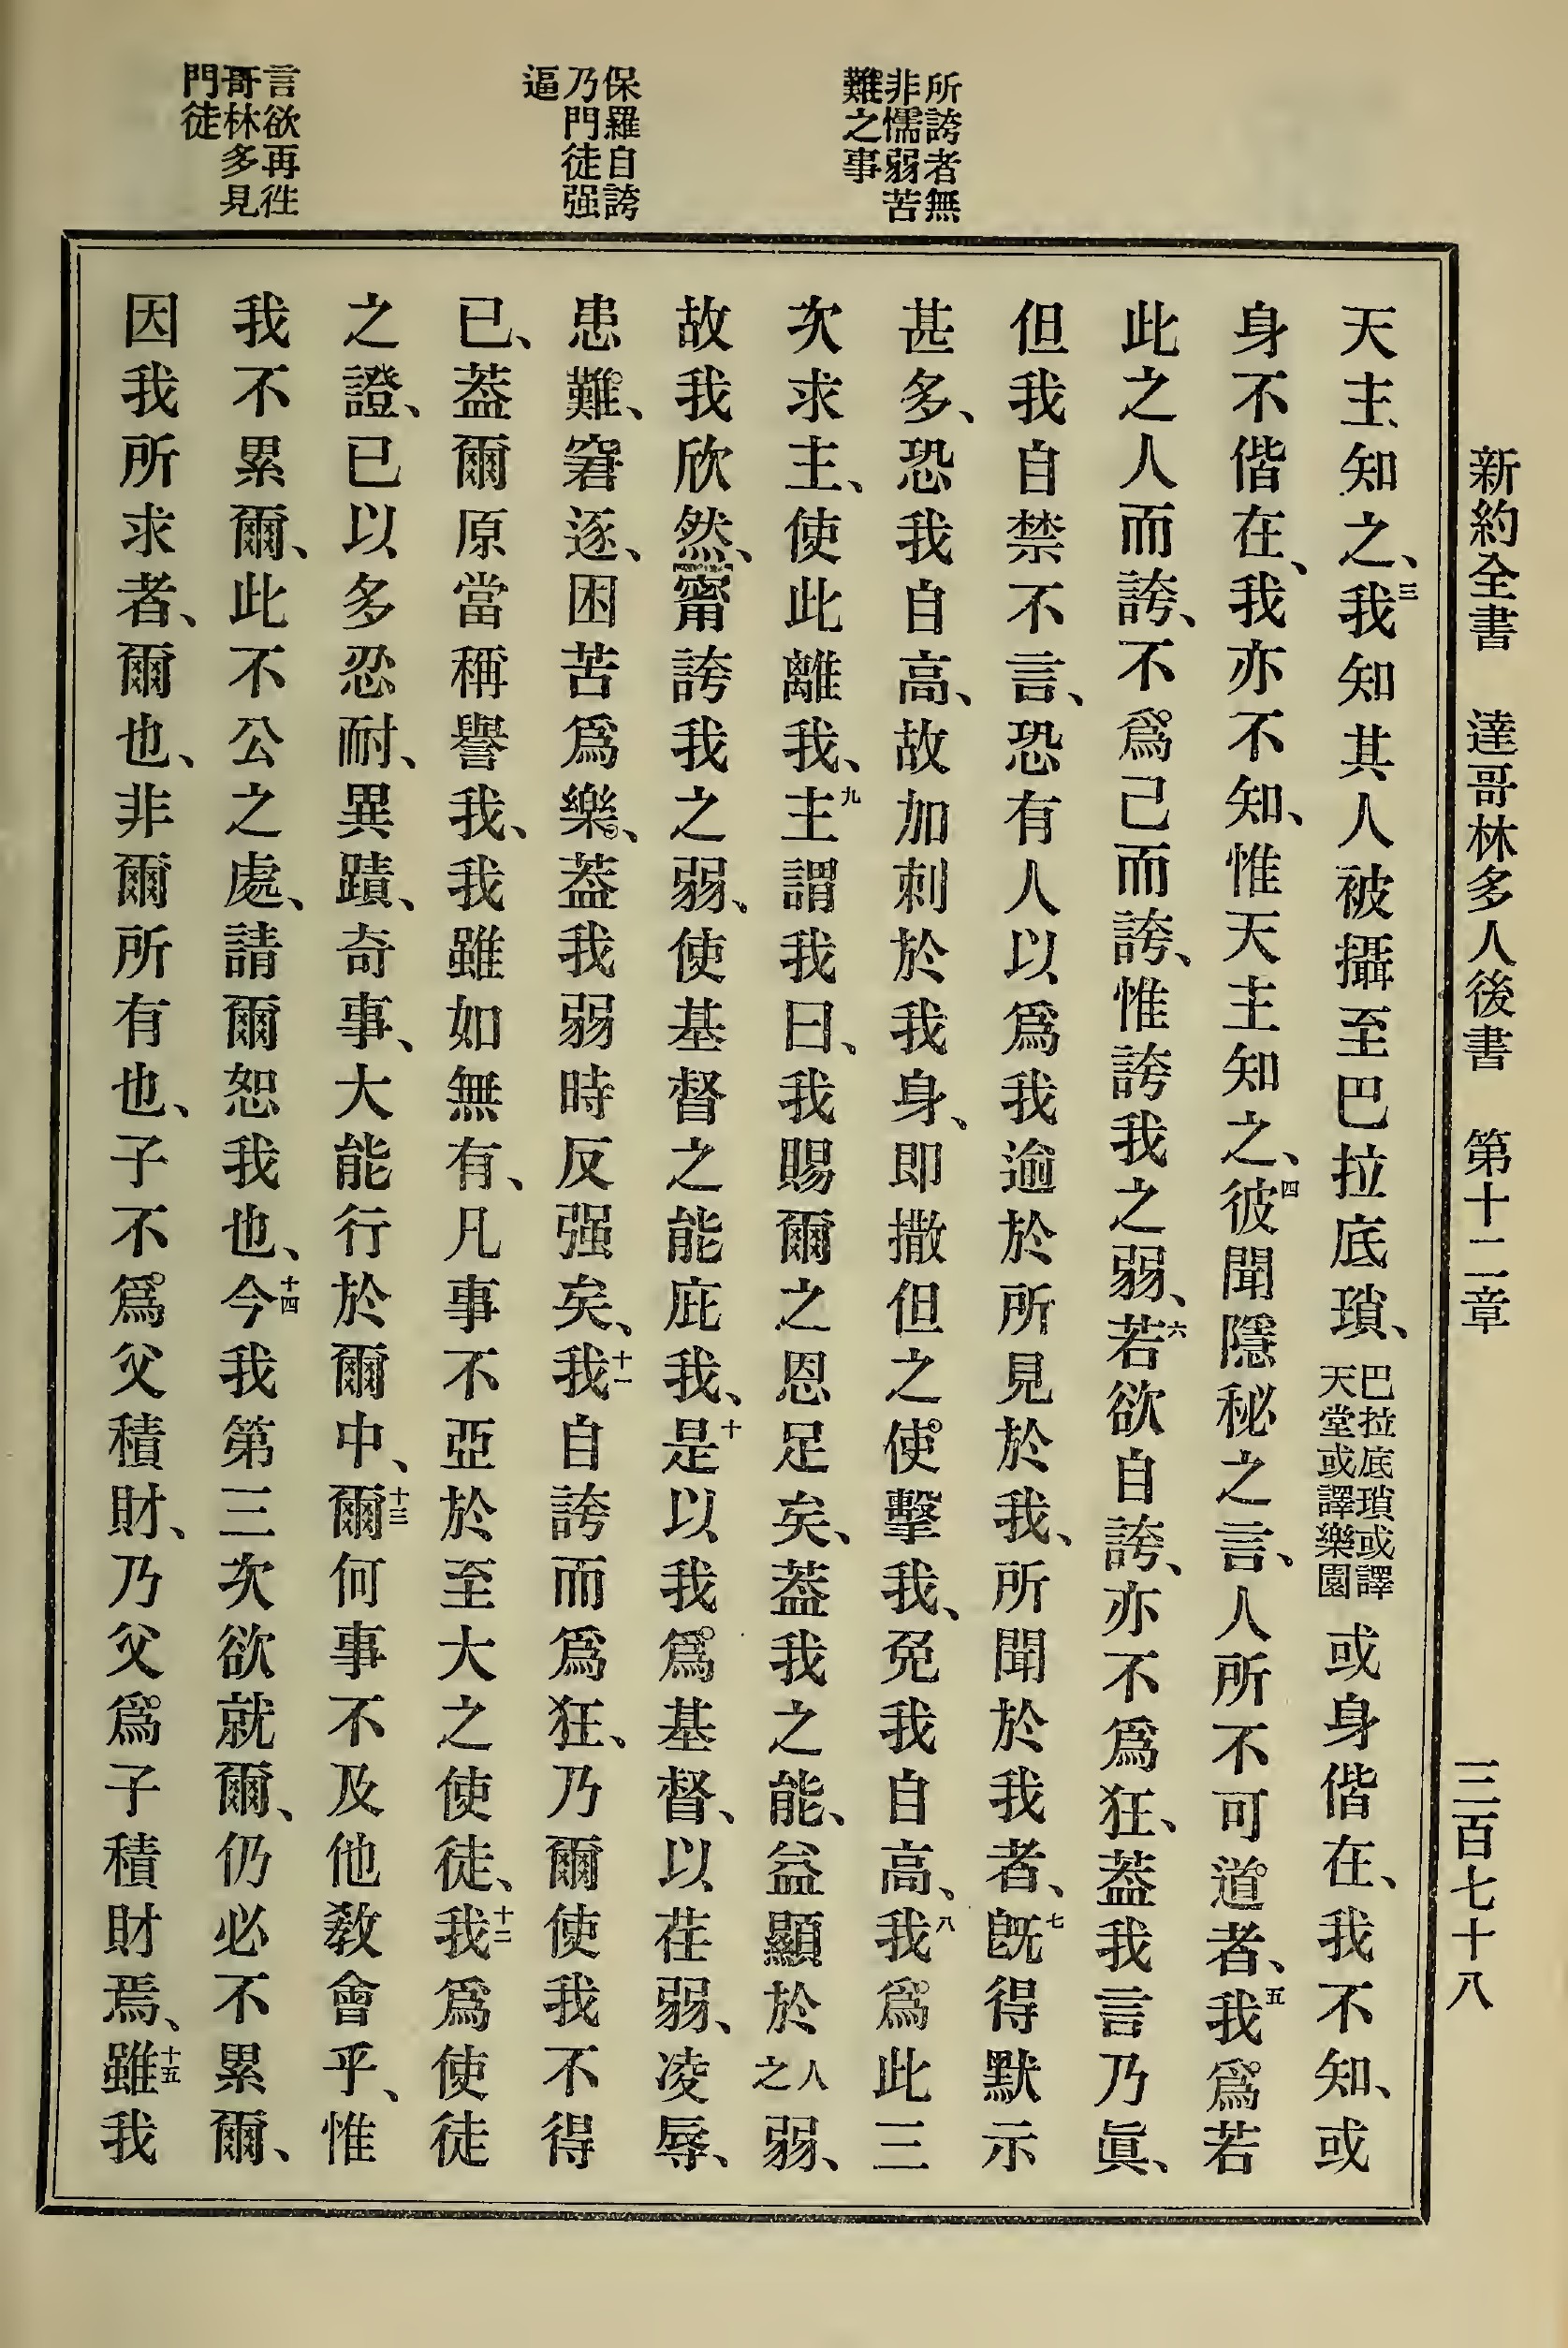 新約全書　達哥林多人後書　第十二章　三百七十八
所誇者無
非懦弱苦
難之事
保羅自誇
乃門徒强
逼
言欲再徃
哥林多見
門徒
天主知之、三我知其人被攝至巴拉底瑣、巴拉底瑣或譯天堂或譯樂園或身偕在、我不知、或
身不偕在、我亦不知、惟天主知之、四彼聞隱秘之言、人所不可道者、五我爲若
此之人而誇、不爲己而誇、惟誇我之弱、六若欲自誇、亦不爲狂、葢我言乃眞、
但我自禁不言、恐有人以爲我逾於所見於我、所聞於我者、七旣得默示
甚多、恐我自高、故加刺於我身、即撒但之使擊我、免我自高、八我爲此三
次求主、使此離我、九主謂我曰、我賜爾之恩足矣、葢我之能、益顯於人之弱、
故我欣然、甯誇我之弱、使基督之能庇我、十是以我爲基督、以荏弱、凌辱、
患難、窘逐、困苦爲樂、葢我弱時反强矣、十一我自誇而爲狂、乃爾使我不得
已、葢爾原當稱譽我、我雖如無有、凡事不亞於至大之使徒、十二我爲使徒
之證、已以多忍耐、異蹟、奇事、大能行於爾中、十三爾何事不及他敎會乎、惟
我不累爾、此不公之處、請爾恕我也、十四今我第三次欲就爾、仍必不累爾、
因我所求者、爾也、非爾所有也、子不爲父積財、乃父爲子積財焉、十五雖我